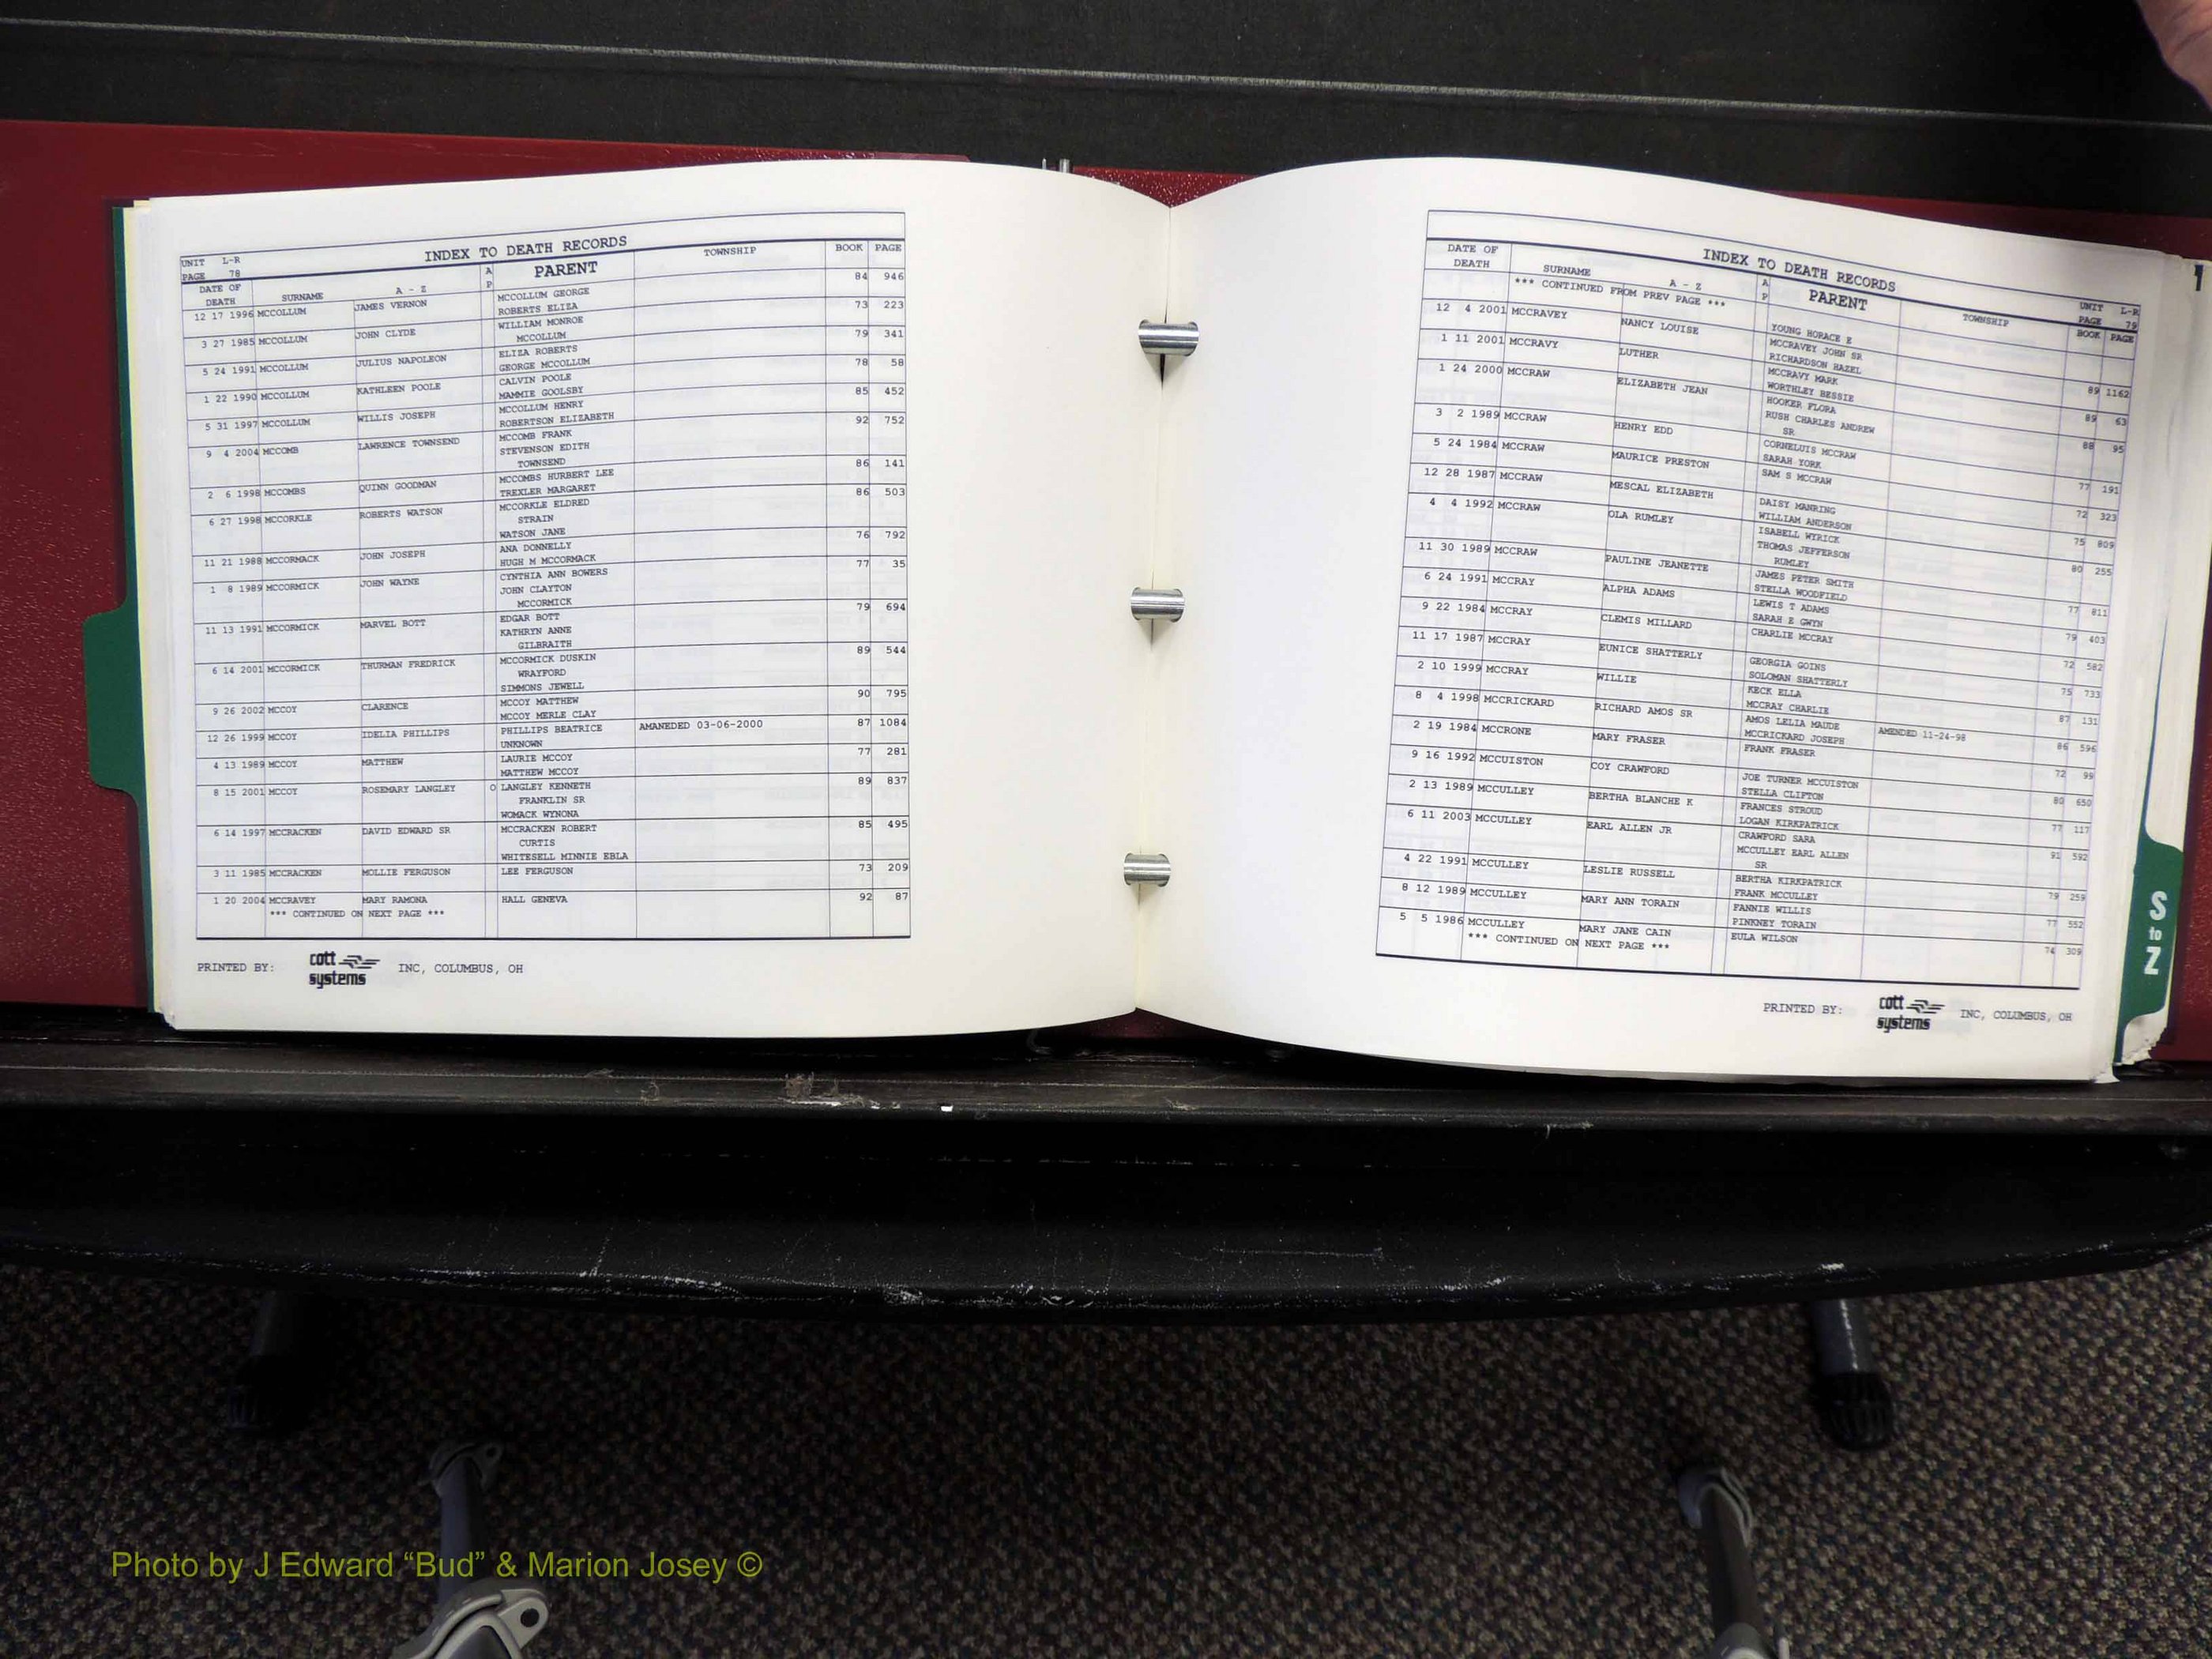 UNIT L-R INDEX TO DEATH RECORDS
PAGE 78
DATE OF DEATH SURNAME A - Z A P PARENT TOWNSHIP BOOK PAGE
12 17 1996 MCCOLLUM JAMES VERNON MCCOLLUM GEORGE 84 946
ROBERTS ELIZA
3 27 1985 MCCOLLUM JOHN CLYDE WILLIAM MONROE 73 223
MCCOLLUM
ELIZA ROBERTS
5 24 1991 MCCOLLUM JULIUS NAPOLEON GEORGE MCCOLLUM 79 341
1 22 1990 MCCOLLUM KATHLEEN POOLE CALVIN POOLE 78 58
MAMMIE GOOLSBY
5 31 1997 MCCOLLUM WILLIS JOSEPH MCCOLLUM HENRY 85 452
ROBERTSON ELIZABETH
9 4 2004 MCCOMB LAWRENCE TOWNSEND MCCOMB FRANK 92 752
STEVENSON EDITH
TOWNSEND
2 6 1998 MCCOMBS QUINN GOODMAN MCCOMBS HURBERT LEE 86 141
TREXLER MARGARET
6 27 1998 MCCORKLE ROBERTS WATSON MCCORKLE ELDRED 86 503
STRAIN
WATSON JANE
11 21 1988 MCCORMACK JOHN JOSEPH ANA DONNELLY 76 792
HUGH M MCCORMACK
1 8 1989 MCCORMICK JOHN WAYNE CYNTHIA ANN BOWERS 77 35
JOHN CLAYTON
MCCORMICK
11 13 1991 MCCORMICK MARVEL BOTT EDGAR BOTT 79 694
KATHRYN ANNE
GILBRAITH
6 14 2001 MCCORMICK THURMAN FREDRICK MCCORMICK DUSKIN 89 544
WRAYFORD
SIMMONS JEWELL
9 26 2002 MCCOY CLARENCE MCCOY MATTHEW 90 795
MCCOY MERLE CLAY
12 26 1999 MCCOY IDELIA PHILLIPS PHILLIPS BEATRICE AMANEDED 03-06-2000 87 1084
UNKNOWN
4 13 1989 MCCOY MATTHEW LAURIE MCCOY 77 281
MATTHEW MCCOY
8 15 2001 MCCOY ROSEMARY LANGLEY O LANGLEY KENNETH 89 837
FRANKLIN SR
WOMACK WYNONA
6 14 1997 MCCRACKEN DAVID EDWARD SR MCCRACKEN ROBERT 85 495
CURTIS
WHITESELL MINNIE EBLA
3 11 1985 MCCRACKEN MOLLIE FERGUSON LEE FERGUSON 73 209
1 20 2004 MCCRAVEY MARY RAMONA HALL GENEVA 92 87
*** CONTINUED ON NEXT PAGE ***
PRINTED BY: cott systems INC, COLUMBUS, OH
INDEX TO DEATH RECORDS UNIT L-R
PAGE 79
DATE OF DEATH SURNAME A - Z A P PARENT TOWNSHIP BOOK PAGE
*** CONTINUED FROM PREV PAGE ***
YOUNG HORACE E
12 4 2001 MCCRAVEY NANCY LOUISE MCCRAVEY JOHN SR 89 1162
RICHARDSON HAZEL
1 11 2001 MCCRAVY LUTHER MCCRAVY MARK 89 63
WORTHLEY BESSIE
1 24 2000 MCCRAW ELIZABETH JEAN HOOKER FLORA 88 95
RUSH CHARLES ANDREW
SR
3 2 1989 MCCRAW HENRY EDD CORNELUIS MCCRAW 77 191
SARAH YORK
5 24 1984 MCCRAW MAURICE PRESTON SAM S MCCRAW 72 323
12 28 1987 MCCRAW MESCAL ELIZABETH DAISY MANRING 75 809
WILLIAM ANDERSON
4 4 1992 MCCRAW OLA RUMLEY ISABELL WYRICK 80 255
THOMAS JEFFERSON
RUMLEY
11 30 1989 MCCRAW PAULINE JEANETTE JAMES PETER SMITH 77 811
STELLA WOODFIELD
6 24 1991 MCCRAY ALPHA ADAMS LEWIS T ADAMS 79 403
SARAH E GWYN
9 22 1984 MCCRAY CLEMIS MILLARD CHARLIE MCCRAY 72 582
11 17 1987 MCCRAY EUNICE SHATTERLY GEORGIA GOINS 75 733
SOLOMAN SHATTERLY
2 10 1999 MCCRAY WILLIE KECK ELLA 87 131
MCCRAY CHARLIE
8 4 1998 MCCRICKARD RICHARD AMOS SR AMOS LELIA MAUDE AMENDED 11-24-98 86 596
MCCRICKARD JOSEPH
2 19 1984 MCCRONE MARY FRASER FRANK FRASER 72 99
9 16 1992 MCCUISTON COY CRAWFORD JOE TURNER MCCUISTON 80 650
STELLA CLIFTON
2 13 1989 MCCULLEY BERTHA BLANCHE K FRANCES STROUD 77 117
LOGAN KIRKPATRICK
6 11 2003 MCCULLEY EARL ALLEN JR CRAWFORD SARA 91 592
MCCULLEY EARL ALLEN
SR
4 22 1991 MCCULLEY LESLIE RUSSELL BERTHA KIRKPATRICK 79 259
FRANK MCCULLEY
8 12 1989 MCCULLEY MARY ANN TORAIN FANNIE WILLIS 77 552
PINKNEY TORAIN
5 5 1986 MCCULLEY MARY JANE CAIN EULA WILSON 74 309
*** CONTINUED ON NEXT PAGE ***
PRINTED BY: cott systems INC, COLUMBUS, OH
S to Z
Photo by J Edward “Bud” & Marion Josey ©